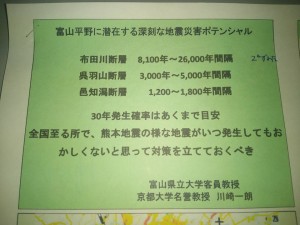 富山平野に潜在する深刻な地震災害ポテンシャル
布田川断層 8,100年～26,000年間隔
呉羽山断層 3,000年～5,000年間隔
邑知潟断層 1,200～1,800年間隔
30年発生確率はあくまで目安
全国至る所で、熊本地震の様な地震がいつ発生してもお
かしくないと思って対策を立てておくべき
富山県立大学客員教授
京都大学名誉教授 川崎一朗